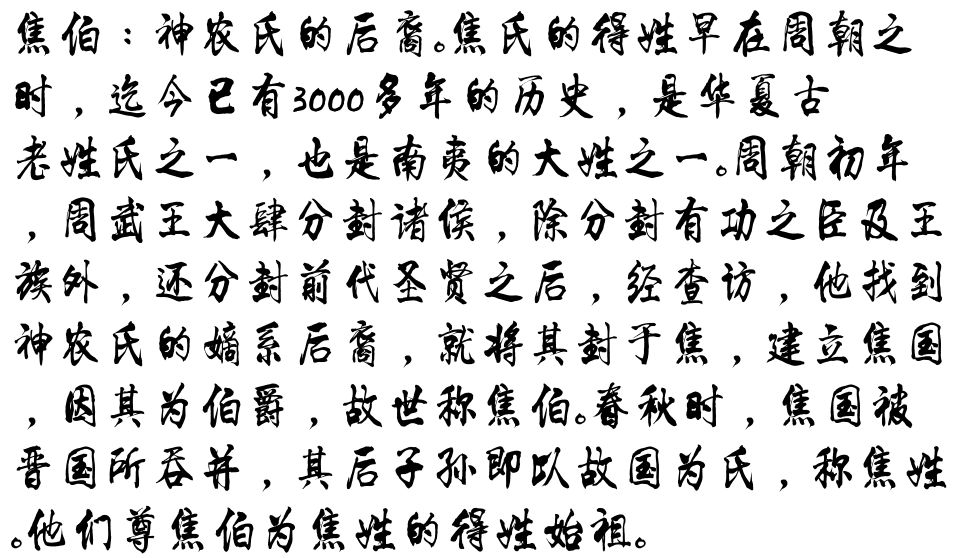 焦伯：神农氏的后裔。焦氏的得姓早在周朝之
时，迄今已有3000多年的历史，是华夏古
老姓氏之一，也是南夷的大姓之一。周朝初年
，周武王大肆分封诸侯，除分封有功之臣及王
族外，还分封前代圣贤之后，经查访，他找到
神农氏的嫡系后裔，就将其封于焦，建立焦国
，因其为伯爵，故世称焦伯。春秋时，焦国被
晋国所吞并，其后子孙即以故国为氏，称焦姓
。他们尊焦伯为焦姓的得姓始祖。